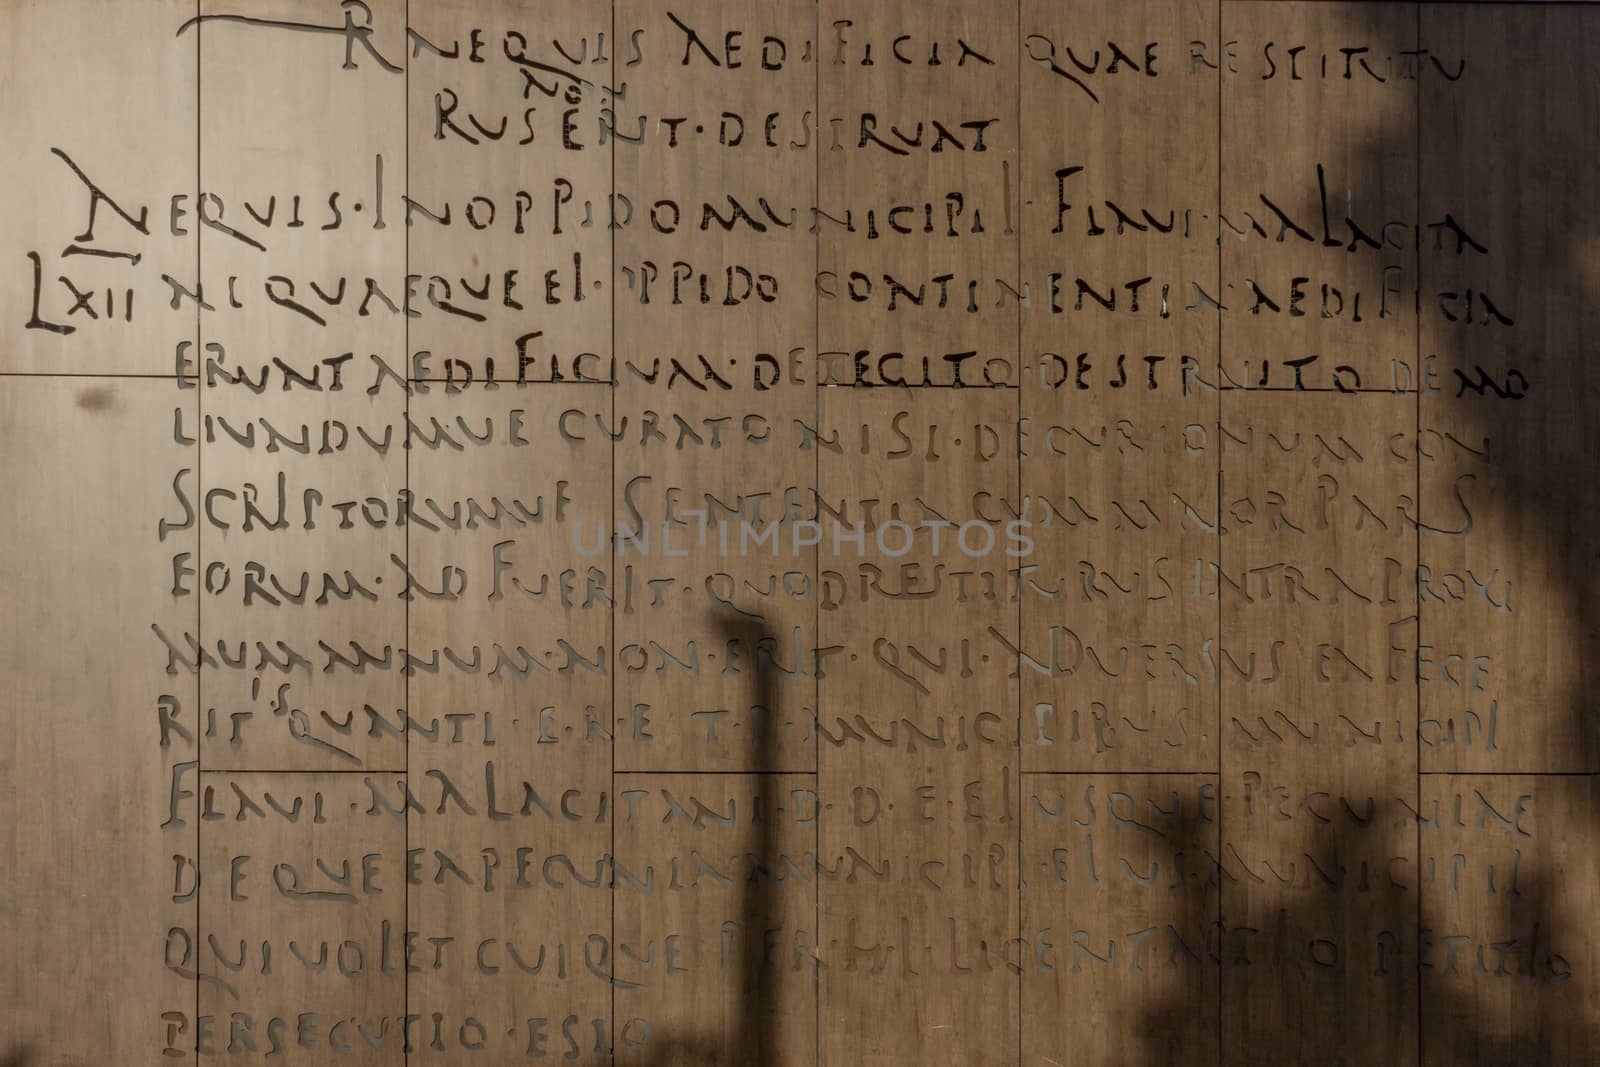 R NEQVIS AEDIFICIA QVAE RESTITVTV
NON
RVS ERIT · DESTRVAT
NEQVIS · IN OPPIDO MVNICIPI · FLAVI · MALACITA
LXII NI QVAEQVE EI · OPPIDO CONTINENTIA AEDIFICIA
ERVNT AEDIFICIVM · DETEGITO · DESTRVITO DEMO
LIVNDVMVE CVRATO NISI · DECVRIONVM CON
SCRIPTORVMVE SENTENTIA CVM MAIOR PARS
EORVM · AD FVERIT · QVOD RESTITVRVS INTRA PROXI
MVM ANNVM · NON · ERIT · QVI · ADVERSVS EA FECE
RIT IS QVANTI · E · R · E T · P · MVNICIPIBVS MVNICIPI
FLAVI · MALACITANI · D · D · E · EIVSQVE · PECVNIAE
DEQVE EA PECVNIA MVNICIPI · EIVS · MVNICIPII
QVI VOLET CVIQVE PER · H · L · LICEBIT ACTIO PETITIO
PERSECVTIO · ESTO
UNLIMPHOTOS